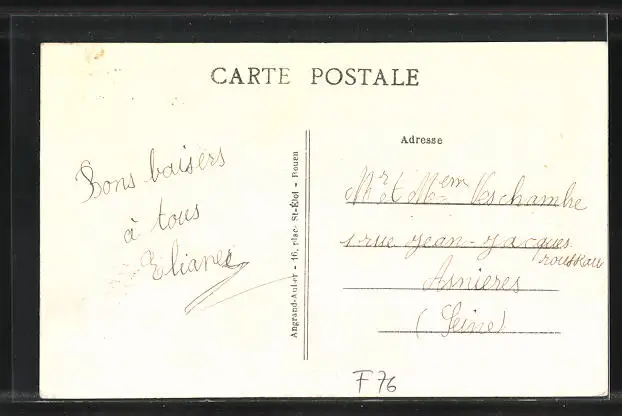 CARTE POSTALE
Bons baisers
à tous
Eliane
Angrand-Autier - 16, plac. St-Éloi - Rouen
Adresse
Mr et Mem
1 rue Jean-Jacques
rousseau
Asnieres
(Seine)
F76